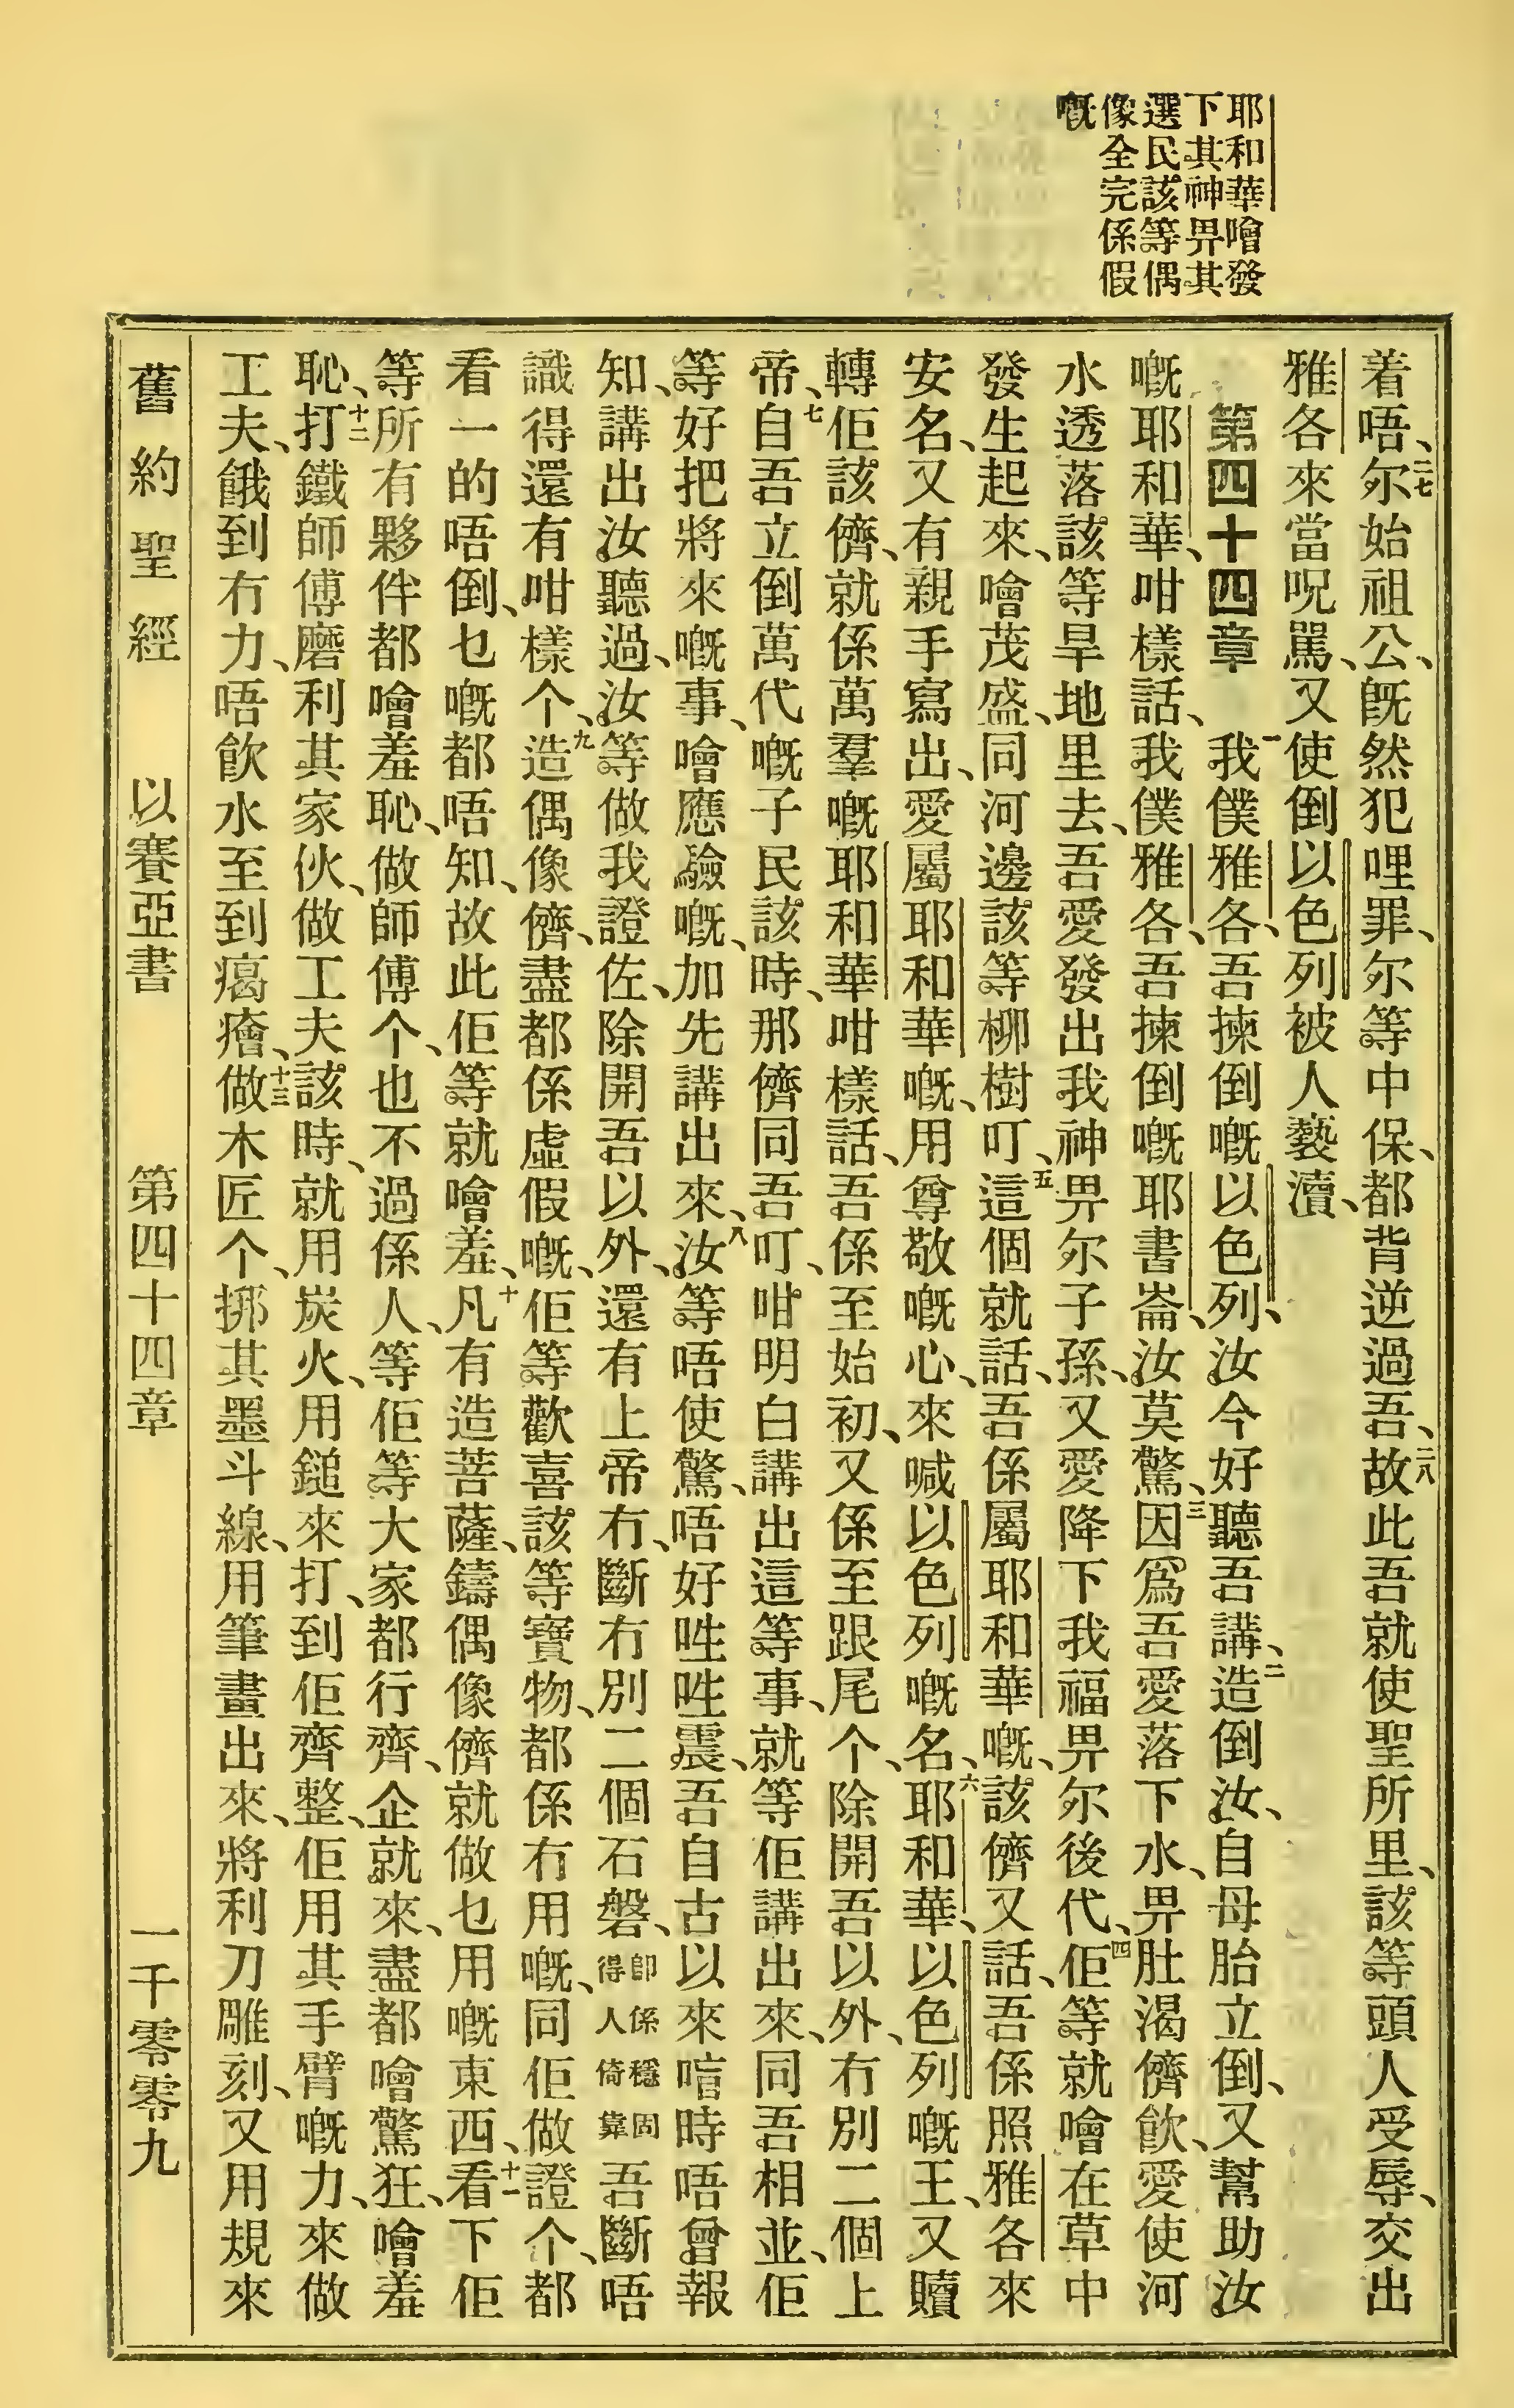 耶和華噲發
下其神畀其
選民該等偶
像全完係假
嘅
着唔、二七尔始祖公、旣然犯哩罪、尔等中保、都背逆過吾、二八故此吾就使聖所里、該等頭人受辱、交出
雅各來當呪駡、又使倒以色列被人褻瀆、
第四十四章 一我僕雅各、吾揀倒嘅以色列、汝今好聽吾講、二造倒汝、自母胎立倒、又幫助汝
嘅耶和華、咁樣話、我僕雅各、吾揀倒嘅耶書崙、汝莫驚、三因爲吾愛落下水、畀肚渴儕飮、愛使河
水透落該等旱地里去、吾愛發出我神畀尔子孫、又愛降下我福畀尔後代、四佢等就噲在草中
發生起來、噲茂盛、同河邊該等柳樹叮、五這個就話、吾係屬耶和華嘅、該儕又話、吾係照雅各來
安名、又有親手寫出、愛屬耶和華嘅、用尊敬嘅心、來喊以色列嘅名、六耶和華、以色列嘅王、又贖
轉佢該儕、就係萬羣嘅耶和華咁樣話、吾係至始初、又係至跟尾个、除開吾以外、冇別二個上
帝、七自吾立倒萬代嘅子民該時、那儕同吾叮、咁明白講出這等事、就等佢講出來、同吾相並、佢
等好把將來嘅事、噲應驗嘅、加先講出來、八汝等唔使驚、唔好呠呠震、吾自古以來喑時唔曾報
知、講出汝聽過、汝等做我證佐、除開吾以外、還有上帝冇、斷冇別二個石磐、卽係穩固得人倚靠吾斷唔
識得還有咁樣个、九造偶像儕、盡都係虛假嘅、佢等歡喜該等寶物、都係冇用嘅、同佢做證个、都
看一的唔倒、乜嘅都唔知、故此佢等就噲羞、十凡有造菩薩、鑄偶像儕就做乜用嘅東西、十一看下佢
等所有夥伴都噲羞恥、做師傅个、也不過係人、等佢等大家都行齊、企就來、盡都噲驚狂、噲羞
恥、十二打鐵師傅磨利其家伙、做工夫該時、就用炭火、用鎚來打、到佢齊整、佢用其手臂嘅力、來做
工夫、餓到冇力、唔飮水至到癐、十三做木匠个、挪其墨斗線、用筆畫出來、將利刀雕刻、又用規來
舊約聖經 以賽亞書 第四十四章 一千零零九